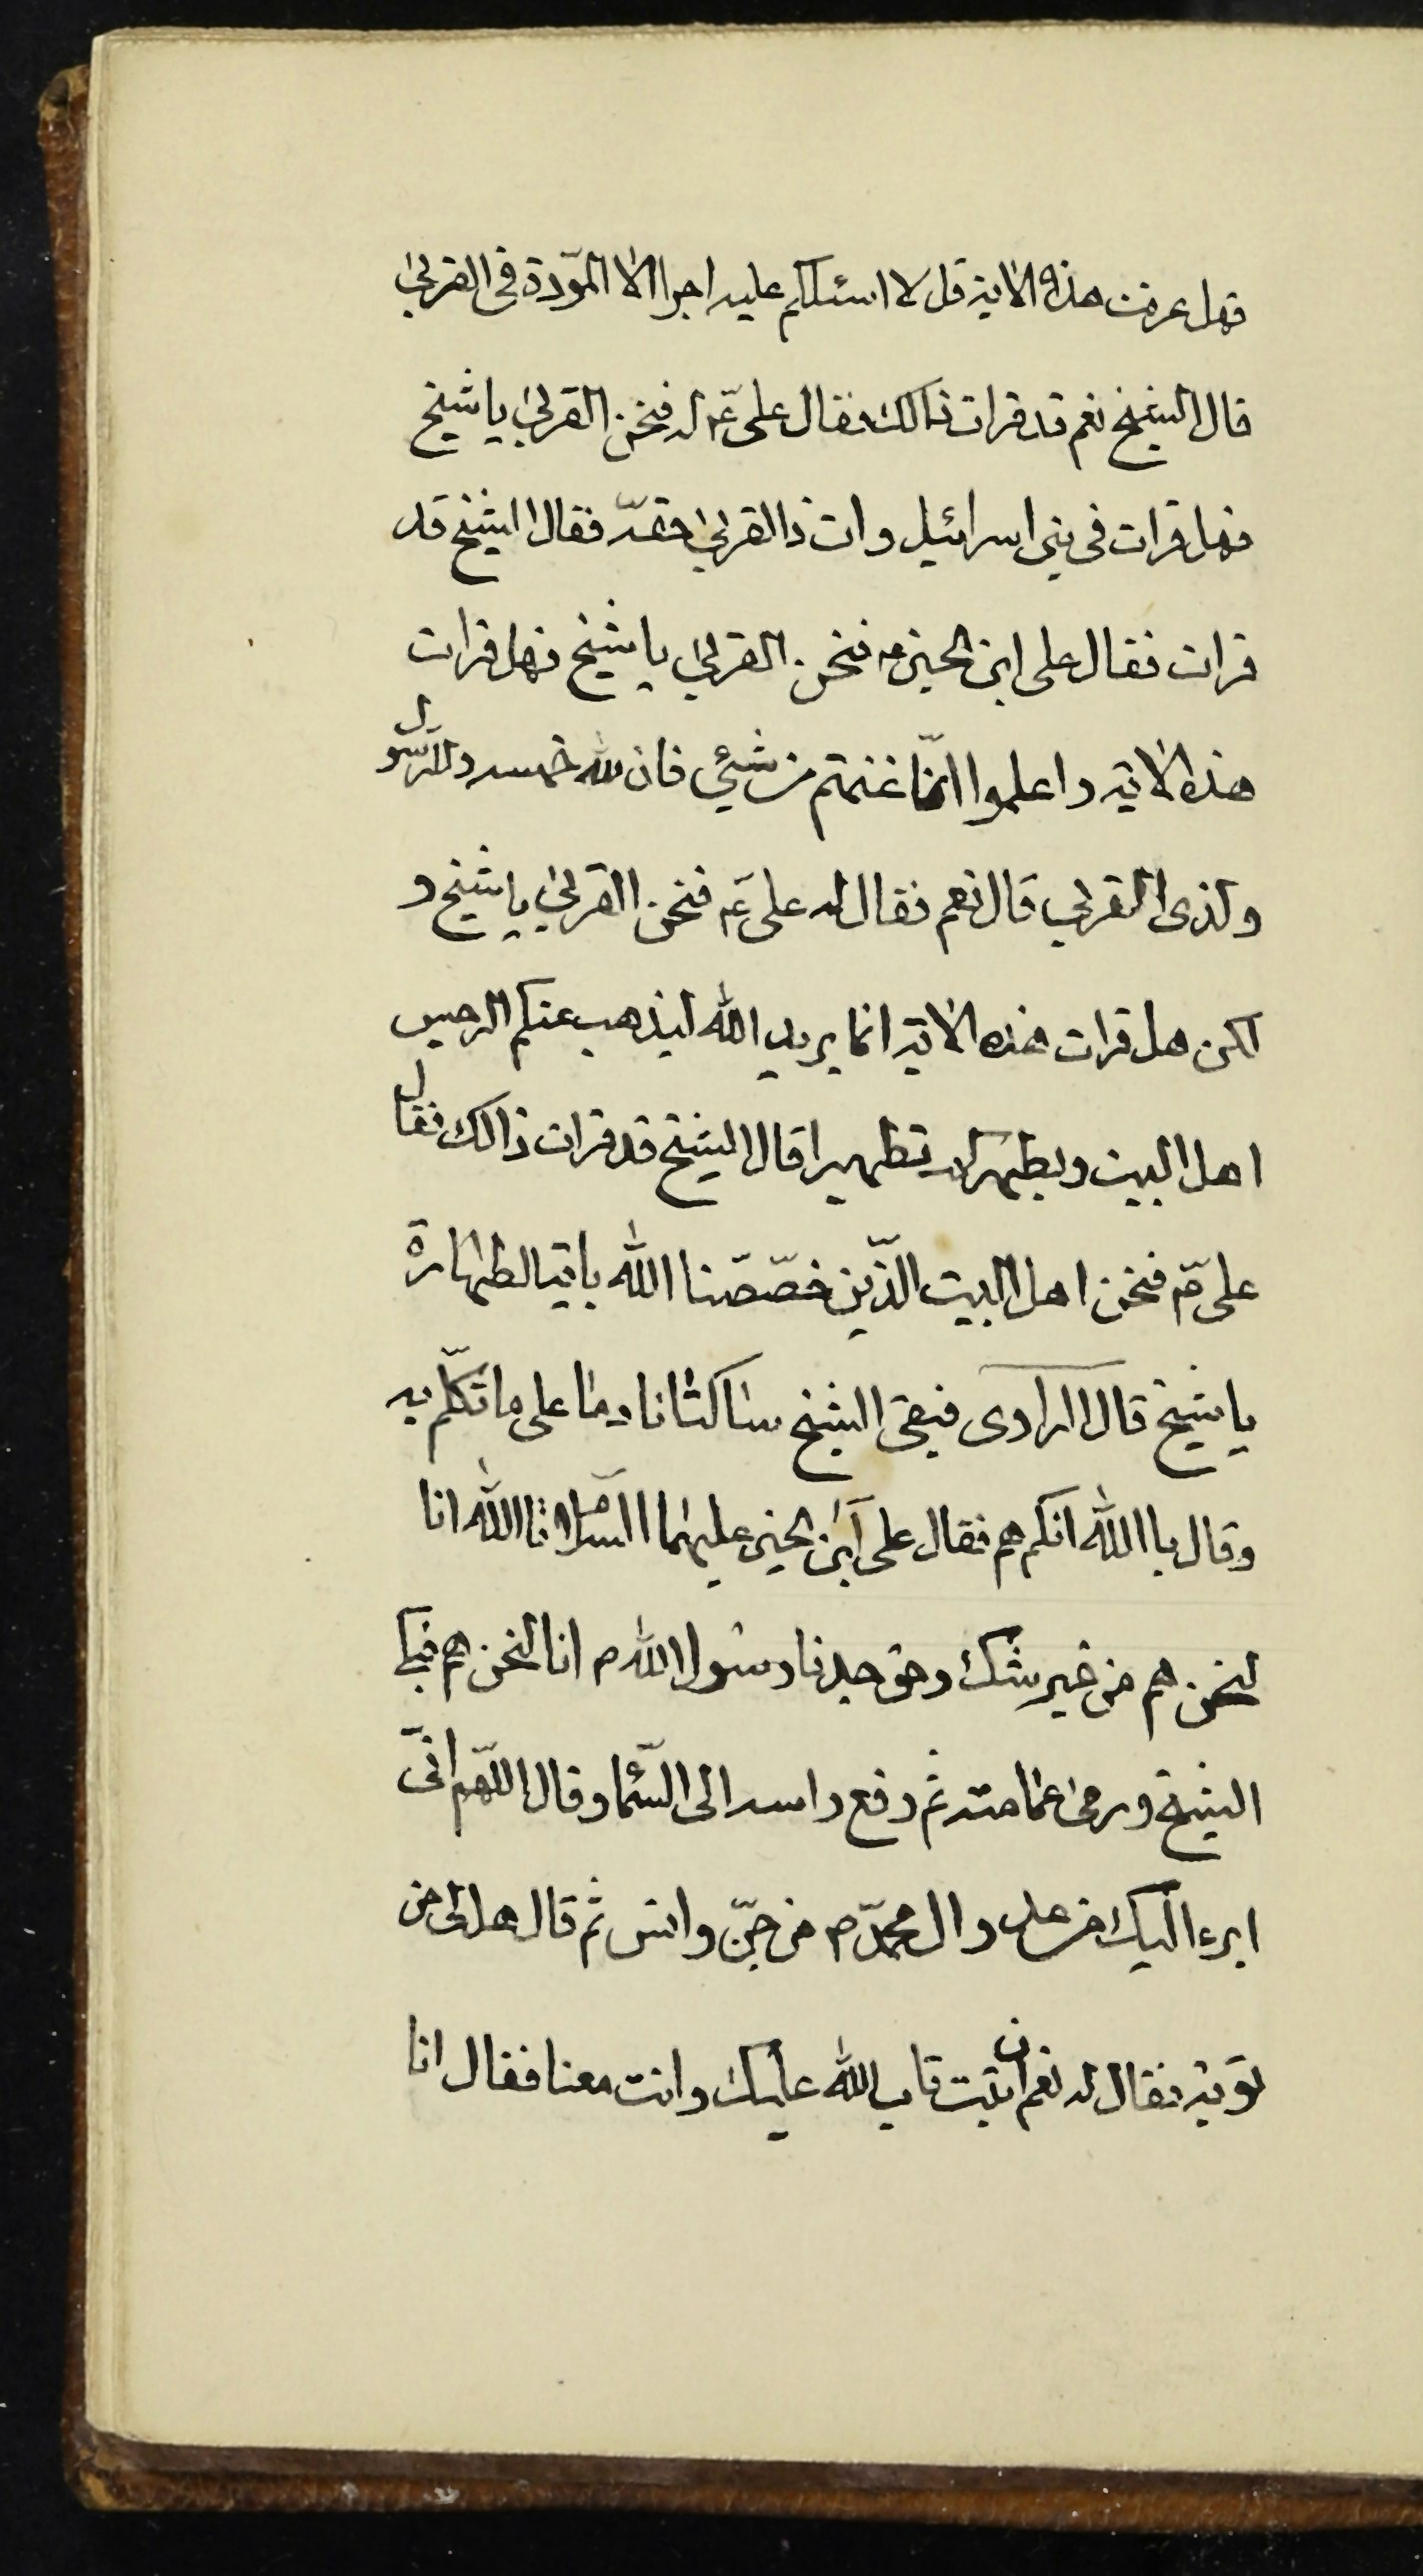 فهل عرفت هذه الاية قل لا اسئلكم عليه اجرا الا المودّة فى القربى
قال الشيخ نعم قد قرات ذالك فقال على عّ له فنحن القربى يا شيخ
فهل قرات فى بنى اسرائيل وات ذا القربى حقّه فقال الشيخ قد
قرات فقال على ابن الحسين ع فنحن القربى يا شيخ فهل قرات
هذه الاية واعلموا انّما غنمتم من شيئ فان لله خمسه وللرّسول
ولذى القربى قال نعم فقال له على عّ فنحن القربى يا شيخ و
لكن هل قرات هذه الاية انما يريد الله ليذهب عنكم الرجس
اهل البيت ويطهركم تطهيرا قال الشيخ قد قرات ذالك فقال
على عّ فنحن اهل البيت الّذين خصّصنا الله باية الطهارة
يا شيخ قال الراوى فبقى الشيخ ساكتا نادما على ما تكلّم به
وقال با الله انكم هم فقال على ابن الحسين عليهما السّلام تا الله انا
لنحن هم من غير شك وحق جدنا رسول الله ص انا لنحن هم فبكى
الشيخ ورمى عمامته ثم رفع راسه الى السّماء وقال اللّهم انّى
ابرء اليك من عدو ال محمّد ص من جنّ وانس ثم قال هل لى من
توبة فقال له نعم ان تبت تاب الله عليك وانت معنا فقال انا